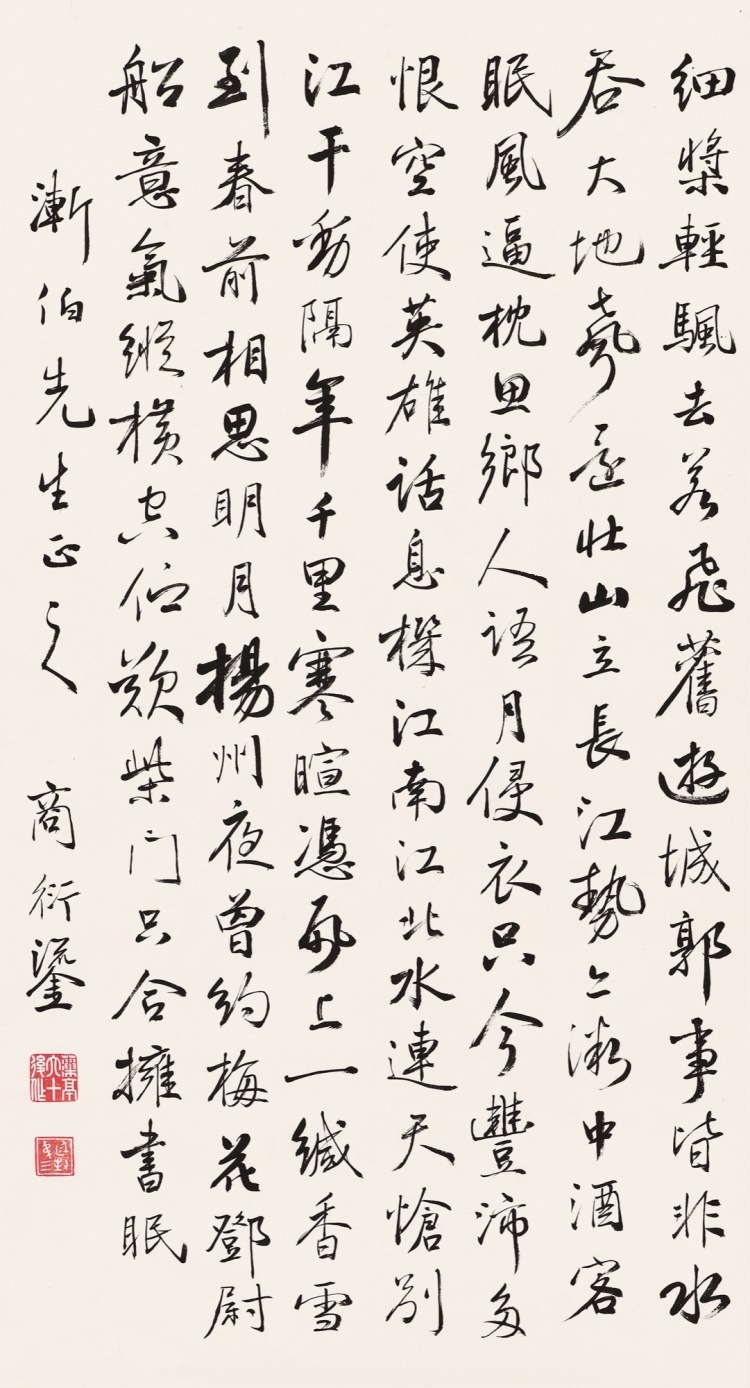 細槳輕颿去若飛舊遊城郭事皆非水
吞大地壯山立長江勢亦微中酒客
眠風逼枕思鄉人語月侵衣只今豐沛多
恨空使英雄話息機江南江北水連天愴別
江干動隔年千里寒暄憑再上一緘香雪
到春前相思明月楊州夜曾約梅花鄧尉
船意氣縱橫空歎柴門只合擁書眠
漸伯先生正之 商衍鎏
藻亭六十後作